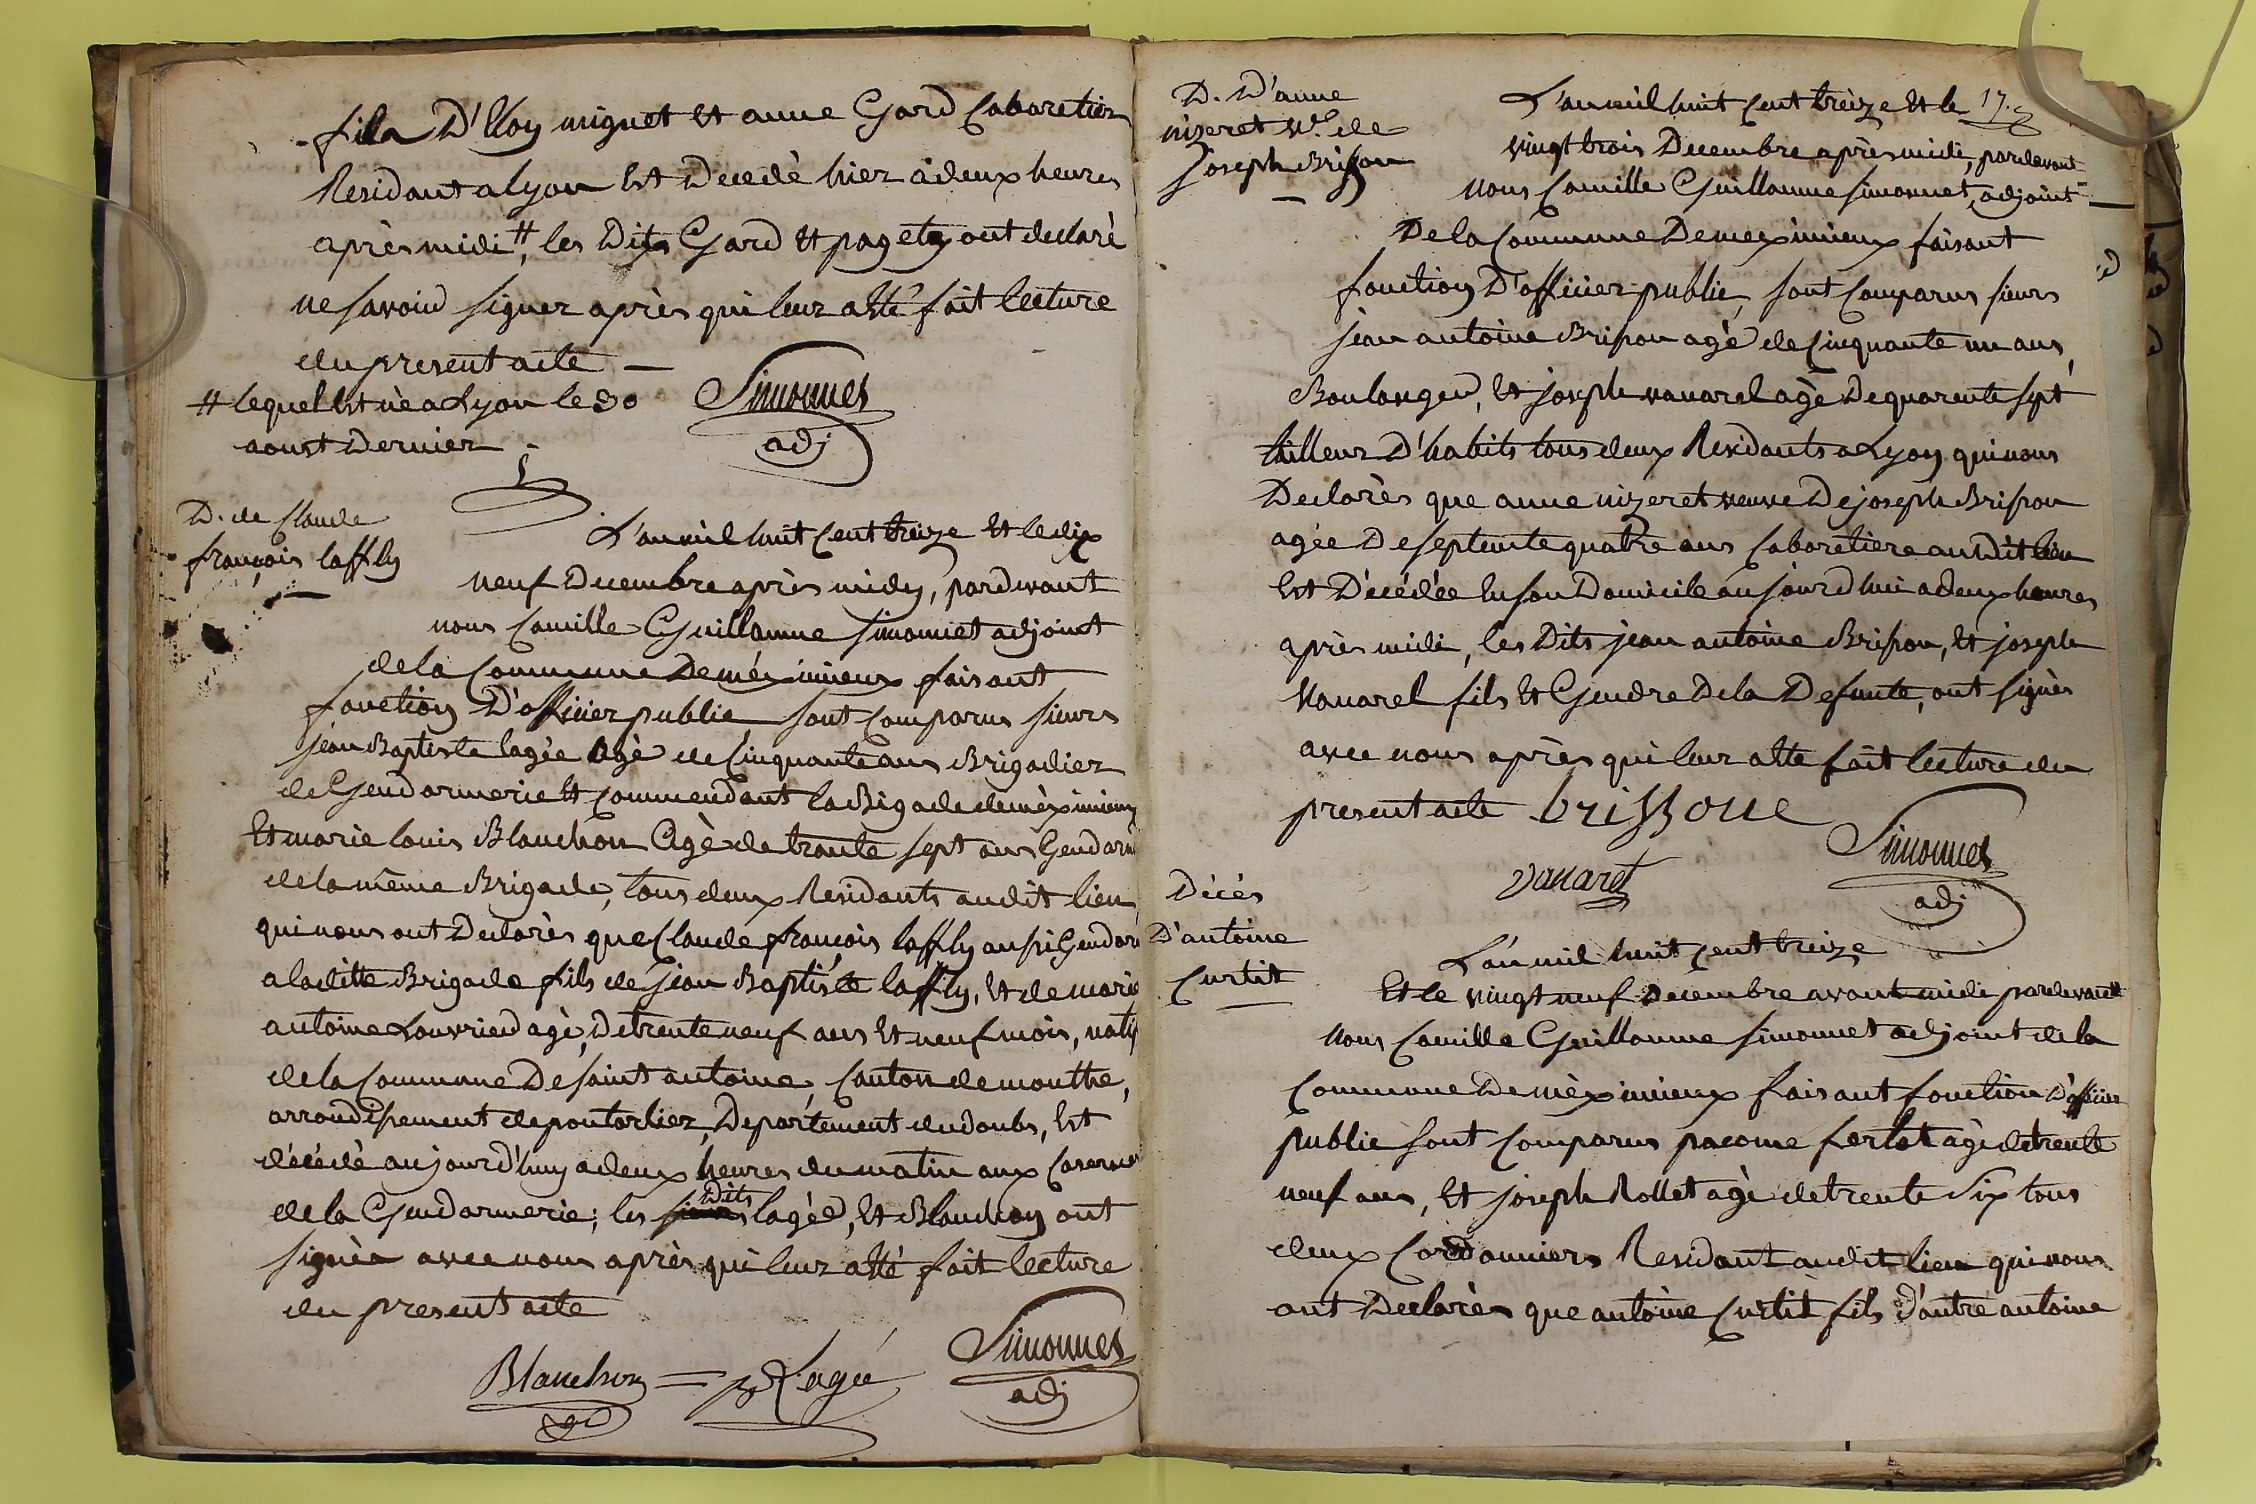 fils D'Eloy miguet Et anne Gard Cabaretier
Residant a lyon Est Decedé hier à deux heures
après midi #, les Dits Gard Et pagety ont declaré
ne savoir signer après qui leur a Eté fait lecture
du present acte —
# lequel Est nè a Lyon le 30
aoust Dernier
Simonnet
adj
D. de Claude
françois laffly
L'an mil huit Cent treize Et le dix
neuf Decembre après midy, pardevant
nous Camille Guillaume Simonnet adjoint
de la Commune De méximieux faisant
fonction D'officier public sont Comparus sieurs
jean Baptiste lagée Agé de Cinquante ans Brigadier
de Gendarmerie Et Commendant la Bigade de mèximieux
Et marie louis Blanchon Agè de trante sept ans Gendarm
de la même Brigade, tous deux Residants audit lieu
qui nous ont Declarès que Claude françois laffly aussi Gendarm
a laditte Brigade fils de jean Baptiste laffly, Et de marie
antoine Louvried agè De trente neuf ans Et neuf mois, natif
de la Commune De saint antoine, Canton de mouthe,
arrondissement de pontarlier, Departement du doubs, Est
décédé aujourd'huy a deux heures du matin aux Casernes
de la Gendarmerie; les Dits lagée, Et Blanchon ont
signèr avec nous après qui leur a Eté fait lecture
du present acte
Blanchon = Lagée
Simonnet
adj
D. D'anne
nizeret Ve. de
joseph Brisson
17.
L'an mil huit Cent trèize Et le
vingt trois Decembre après midi, pardevant
nous Camille Guillaume Simonnet, adjoint
De la Commune De meximieux faisant
fonction D'officier public, sont Comparus sieurs
jean antoine Brisson agè de Cinquante un ans,
Boulanger, Et joseph vanarel agè De quarente sept
tailleur D'habits tous deux Residants a Lyon qui nous
Declarès que anne nizeret veuve De joseph Brisson
agée De septente quatre ans Cabaretiere au Dit lieu
Est Décédée En son Domicile aujourd'hui a deux heures
après midi, les Dits jean antoine Brisson, Et joseph
Vanarel fils Et Gendre De la Defunte, ont signès
avec nous après qui leur a Ete fait lecture du
present acte brissone
vanaret
Simonnet
adj
Décès
D'antoine
Curtit
L'an mil huit Cent treize
Et le vingt neuf Decembre avant midi pardevant
Nous Camille Guillaume Simonnet adjoint de la
Commune De mèximieux faisant fonction D'officier
public sont Comparus pacome ferlet agè de trente
neuf ans, Et joseph Rollet agè de trente Six tous
deux Cordonniers Residant audit lieu qui nous
ont Declarès que antoine Curtit fils d'autre antoine